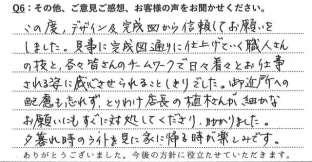 Q6：その他、ご意見ご感想、お客様の声をお聞かせください。
この度、デザイン及完成図から信頼してお願いを
しました。見事に完成図通りに仕上げていく職人さん
の技と、各々皆さんのチームワークで日々着々とお仕事
される姿に感心させられることしきりでした。御近所への
配慮も忘れず、とりわけ店長の植木さんが細かな
お願いにもすぐに対処してくださり、助かりました。
夕暮れ時のライトを見に家に帰る時が楽しみです。
ありがとうございました。今後の方針に役立たせていただきます。